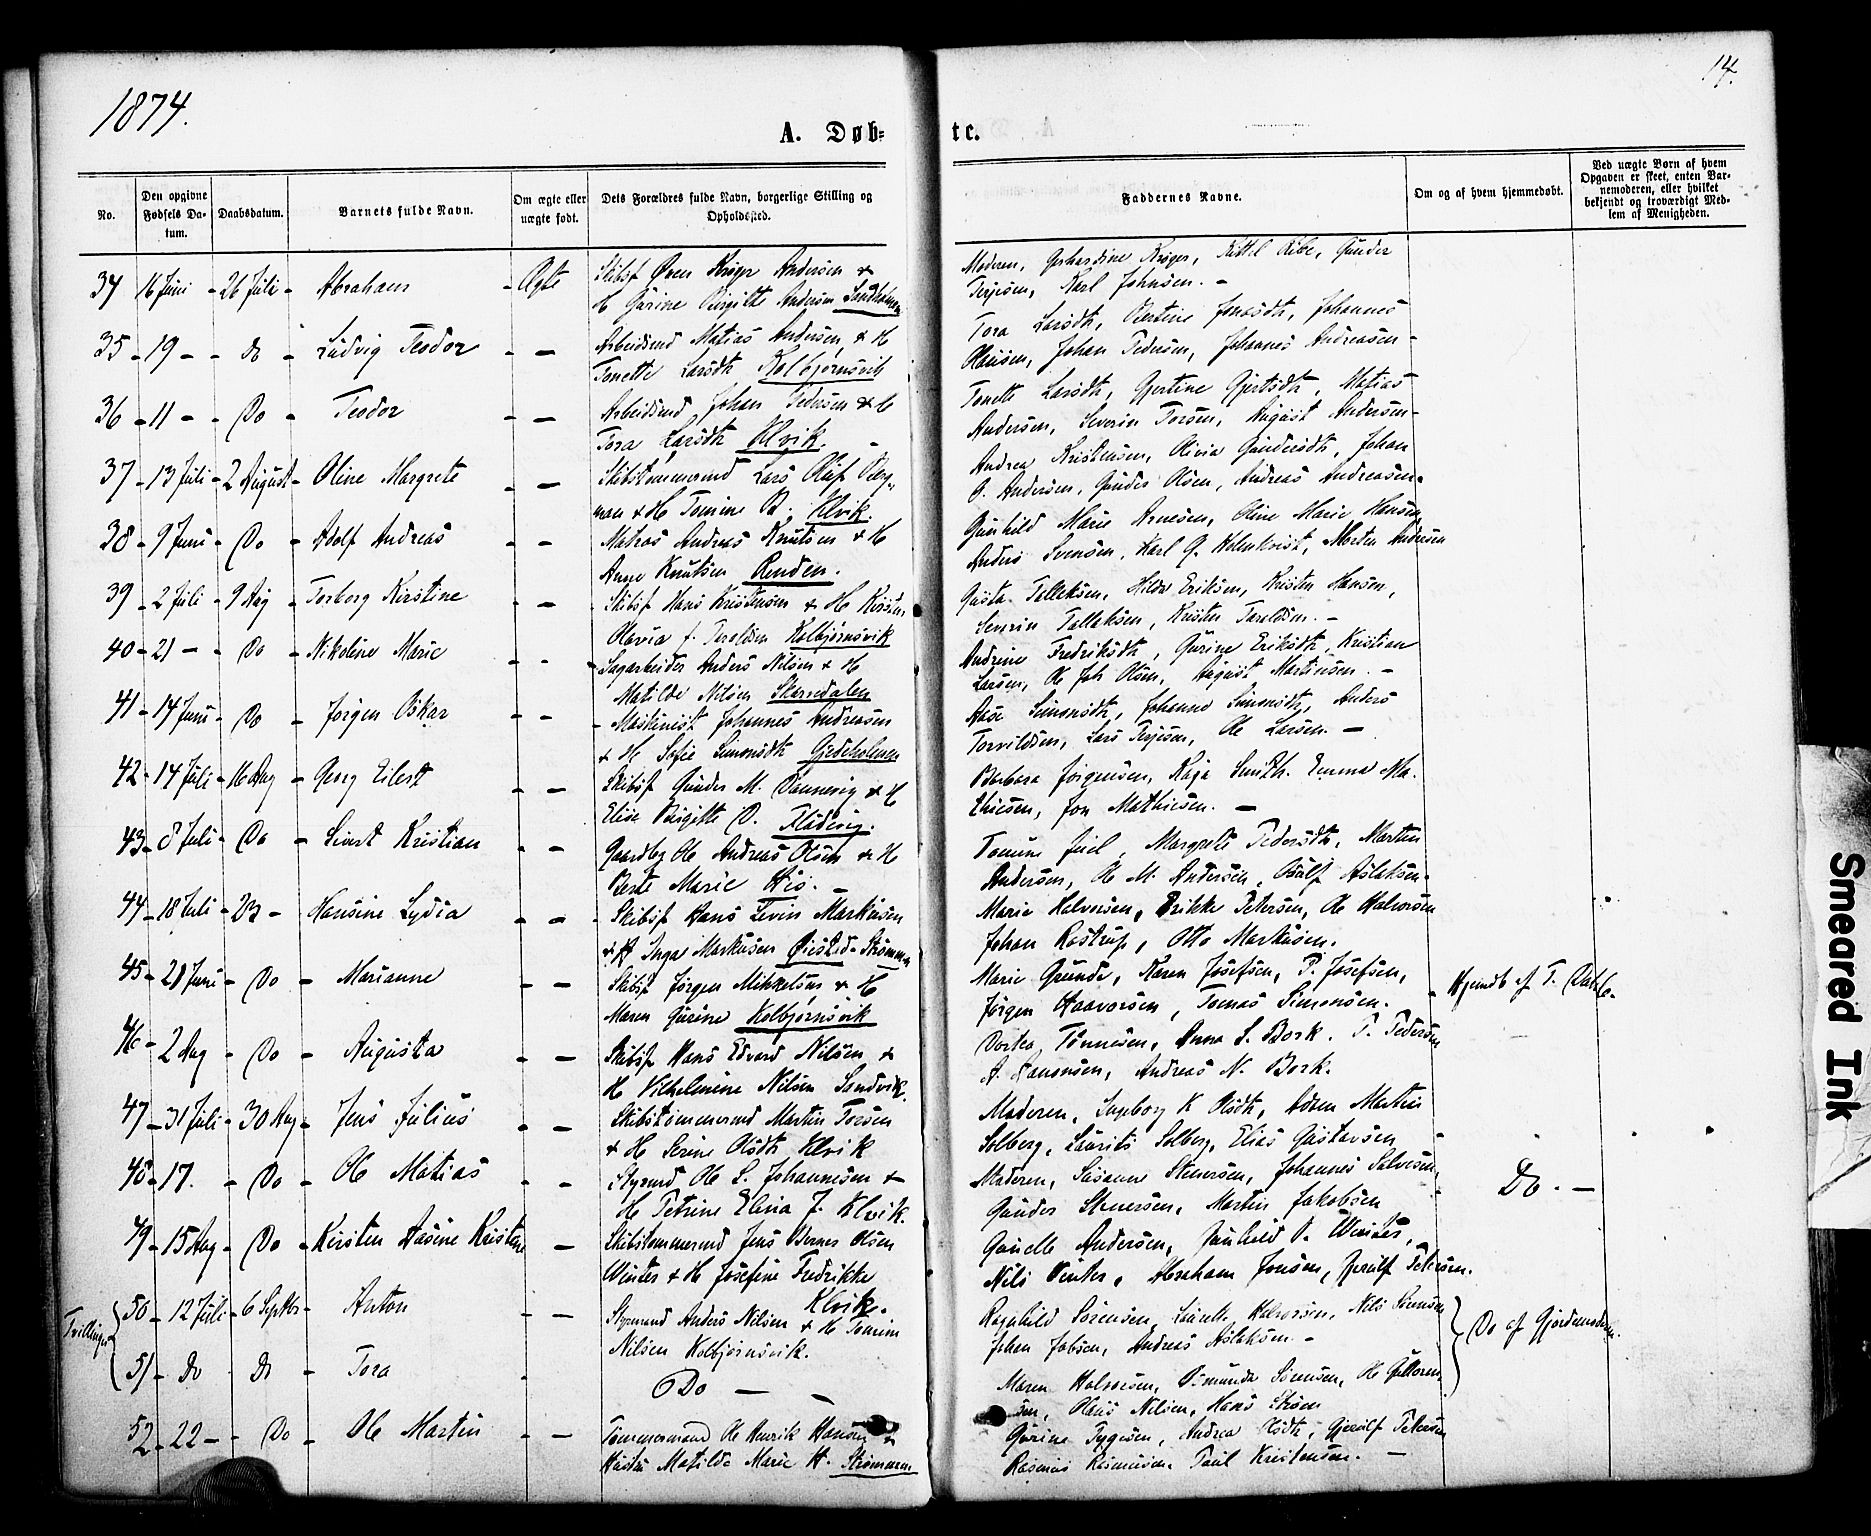 1874.
14.
A. Døb=
tc.
No.
Den opgivne Fødsels Da-tum.
Daabsdatum.
Barnets fulde Navn.
Om ægte eller uægte født.
Dets Forældres fulde Navn, borgerlige Stilling og Opholdssted.
Faddernes Navne.
Om og af hvem hjemmedøbt.
Ved uægte Børn af hvem Opgaven er skeet, enten Bar-nemoderen, eller hvilket bekjendt og troværdigt Med-lem af Menigheden.
34 16 Juni - 26 Juli - Abraham - Ægte Skibsf Andersen &
H Gurine Birgitte Andersen Sandholmen
Moderen, Gerhardine Krøger, Kittil Ribe, Gunder
Terjesen, Karl Johnsen. -
35 - 19 - - do - Ludvig Teodor - - Arbeidsmd Matias Andersen & H
Tonette Larsdtr Kolbjørnsvik
Tora Larsdtr, Bertine Jonasdtr, Johannes
Hansen, Johan Pedersen, Johannes Andreasen -
36 - 11 - - Do - Teodor - - Arbeidsmd Johan Pedersen & H
Tora Larsdtr Klvik. -
Tonette Larsdtr, Gjertine Gjertsdtr, Matias
Andersen, Severin Torsen, August Andersen -
37 - 13 Juli - 2 August - Oline Margrete - - Skibstømmermd Lars Oluf Berg-
man & H Tomine B. Klvik.
Andrea Kristensen, Olivia Gundersdtr, Johan
O. Andersen, Gunder Olsen, Andreas Andreasen.
38 - 9 Juni - Do - Adolf Andreas - - Matros Andreas Knutsen & H
Anne Knutsen Renden.
Gunhild Marie Arnesen, Oline Marie Hansen
Anders Svensen, Karl G. Holmkvist, Morten Andersen
39 - 2 Juli - 9 Aug - Torborg Kirstine - - Skibsf Hans Kristensen & H Kirsten
Olavia f. Taraldsen Kolbjørnsvik
Gusta Tellefsen, Hilda Eriksen, Kristen Hansen,
Severin Tallaksen, Kristen Taraldsen. -
40 - 21 - Do - Nikoline Marie - - Sagarbeider Anders Nilsen & H
Matilde Nilsen Skarredalen
Andrine Fredriksdtr, Gurine Eriksdtr, Kristian
Larsen, Ole Joh Olsen, August Martinsen. -
41 - 14 Juni - Do - Jørgen Oskar - - Maskinist Johannes Andreasen
& H Sofie Simonsdtr Gjedeholmen
Aase Simonsdtr, Johanne Simonsdtr, Anders
Torvildsen, Lars Terjesen, Ole Larsen. -
42 - 14 Juli - 16 Aug - Georg Eilert - - Skibsf Gunder M. Dannevig & H
Elise Birgitte D. Flødevig.
Barbara Jørgensen, Kaja Smith. Emma Ma-
thiesen, Jon Mathiesen. -
43 - 8 Juli - Do - Sivert Kristian - - Gaardbr Ole Andreas Olsen & H
Berte Marie His. -
Tomine Juel, Margrete Pedersdtr, Martin
Andersen, Ole M. Andersen, Aslaksen.
44 - 18 Juli - 23 - Hansine Lydia - - Skibsf Hans Levin Markusen
& H Inga Markusen Øiestad-Strømmen
Marie Halvorsen, Rikke Petersen, Ole Halvorsen
Johan Rostrup, Otto Markusen.
45 - 21 Juni - Do - Marianne - - Skibsf Jørgen Mikkelsen & H
Maren Gurine Kolbjørnsvik
Marie Grunde, Karen Josefsen, P. Josefsen,
Jørgen Haavorsen, Tomas Simonsen.
Hjemdb af T.
46 - 2 Aug - Do - Augusta - - Skibsf Hans Edvard Nilsen &
H Vilhelmine Nilsen Sandvik.
Dortea Tønnesen, Anna S. Bork. P. Pedersen
A. Hansen, Andreas N. Bork.
47 - 31 Juli - 30 Aug - Jens Julius - - Skibstømmermd Martin Torsen
& H Serine Olsdtr Klvik
Moderen, Ingeborg K Olsdtr, Adam Martin
Solberg, Laurits Solberg, Elias Gustavsen
48 - 17. - Do - Ole Matias - - Styrmd Ole S. Johannesen &
H Petrine Elina J. Klvik.
Moderen, Susanne Stenersen, Johannes Salvesen,
Gunder Stenersen, Martin Jakobsen
Do. -
49 - 15 Aug - Do - Kirsten Aasine Kristene - Skibstømmermd Jens Bernes Olsen
Winter & H Josefine Fredrikke
Klvik.
Gunelle Andersen, Gunhild O. Winter,
Nils Vinter, Abraham Jonsen, Gjerulf Petersen.
Tvillinger
50 - 12 Juli - 6 Septbr - Anton - - Styrmand Anders Nilsen & H Tomine
Nilsen Kolbjørnsvik.
Ragnhild Sørensen, Laurette Halvorsen, Nils Sørensen
Johan Jakobsen, Andreas Aslaksen. -
Do af Gjordemoderen.
51 - do - do - Tora - Do - -
Maren Halvorsen, Osmunda Sørensen, Ole Guttorm-
sen, Hans Nilsen, Hans Strøm
52 - 22 - - Do - Ole Martin - - Tømmermand Ole Henrik Hansen &
Hustru Matilde Marie H. Strømmen
Gurine Tygesen, Andrea Olsdtr, Gjerulf Petersen
Rasmus Rasmussen, Paul Kristensen. -
Smeared Ink